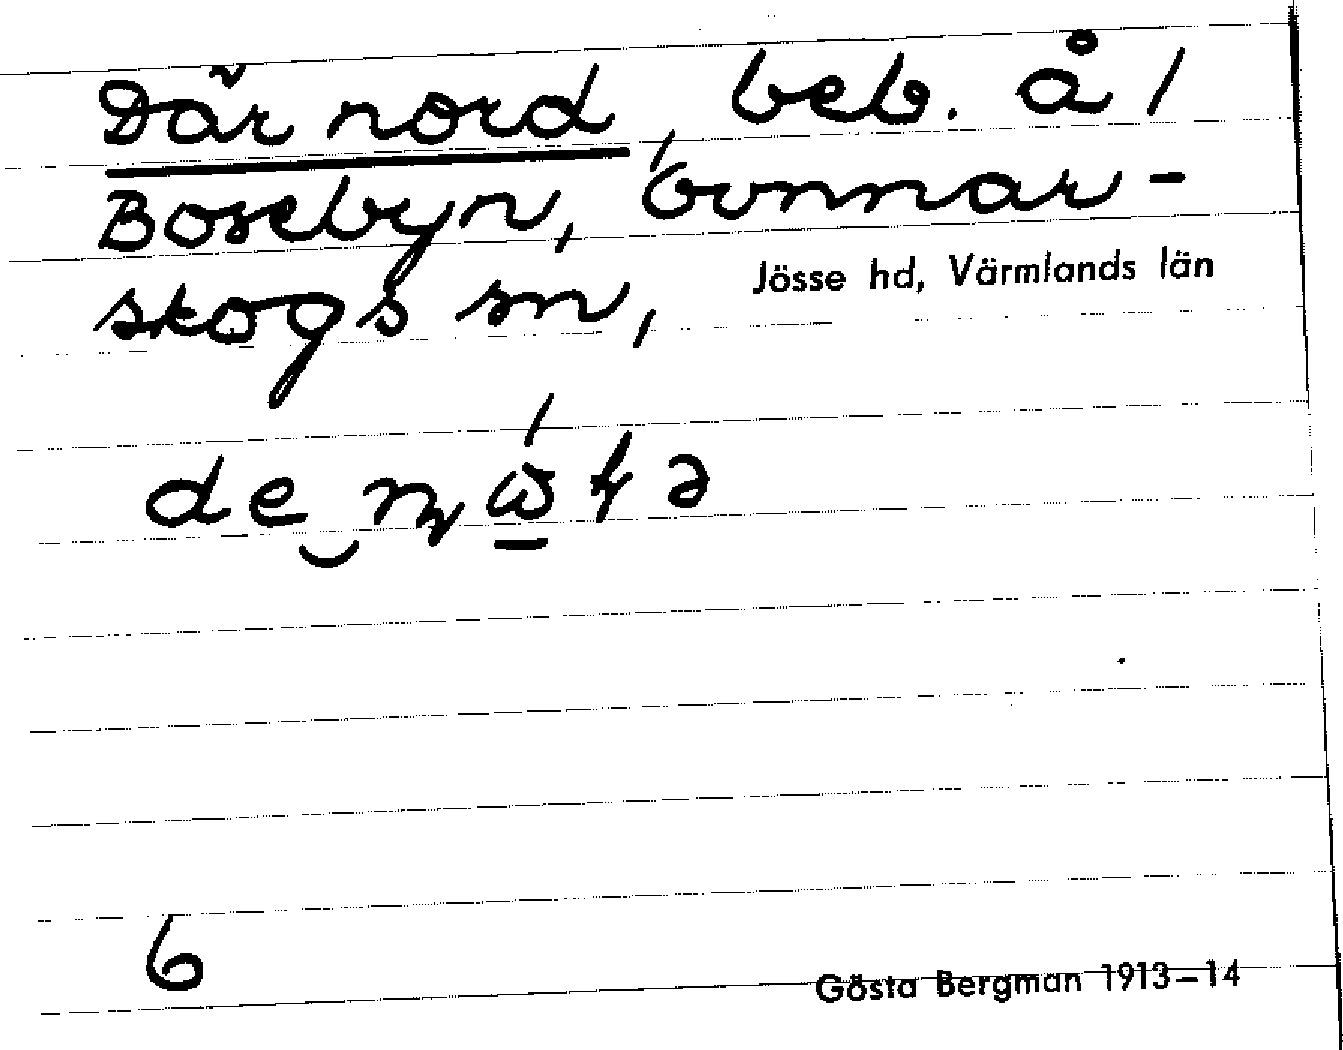 Där nord, beb. å /
Bosebyn, Gunnar-
skogs sn, Jösse hd, Värmlands län
6
Gösta Bergman 1913–14